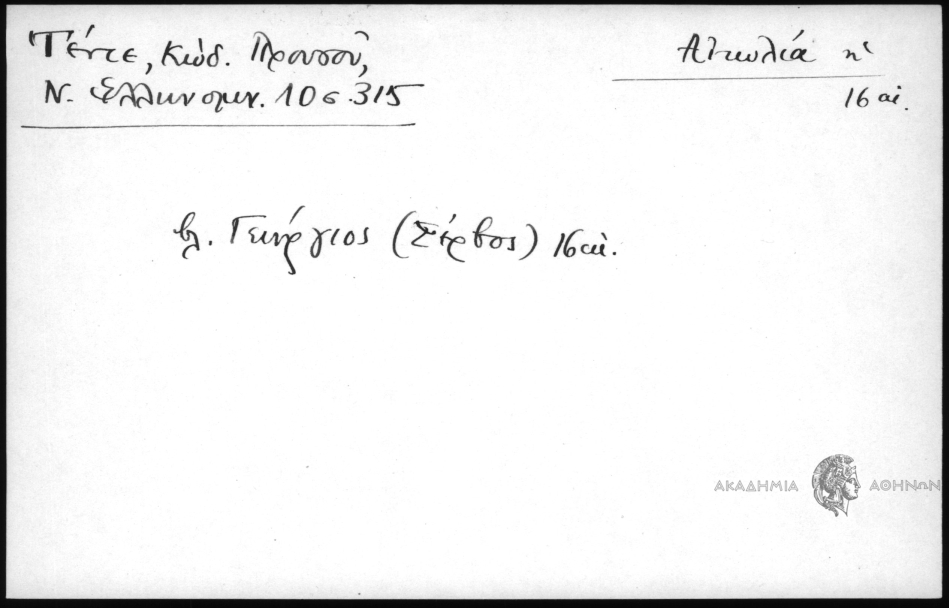 Τέντε, Κώδ. Προυσού,
Ν. Ἑλληνομν. 10 σ. 315
Αἰτωλία κ'
16 αἰ.
βλ. Γεώργιος (Σέρβος) 16 αἰ.
ΑΚΑΔΗΜΙΑ ΑΘΗΝΩΝ